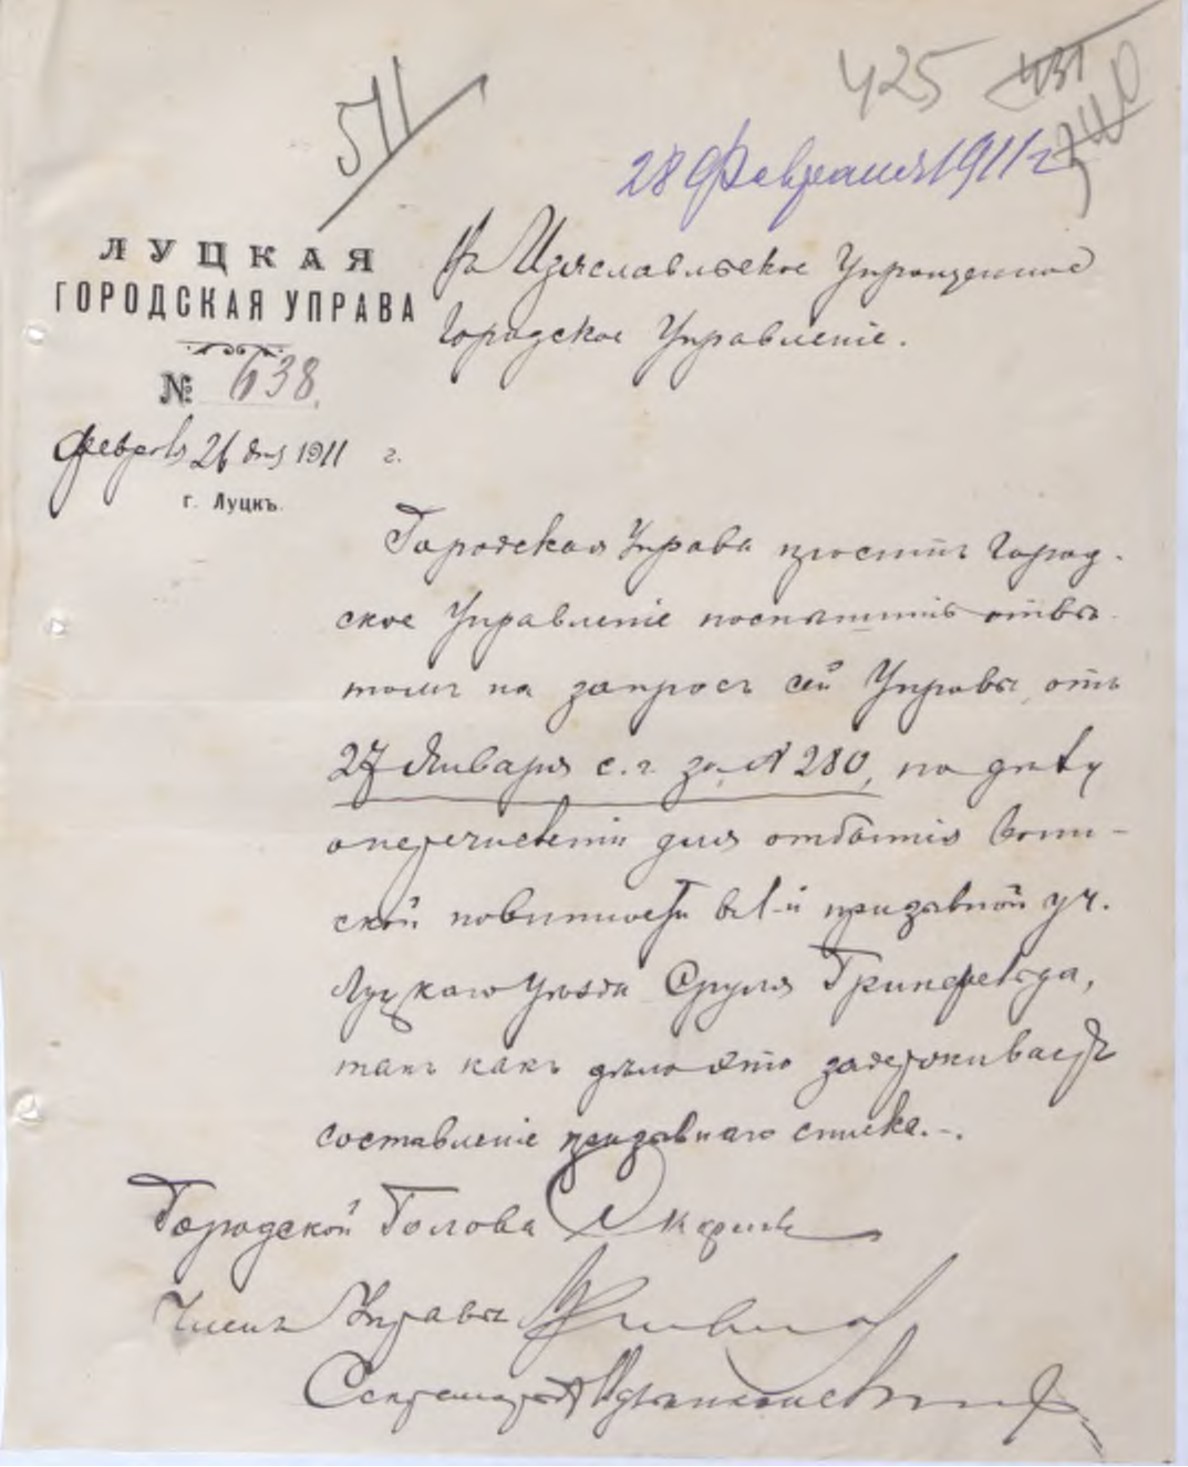 511
425
431
440
28 Февраля 1911 г
ЛУЦКАЯ
ГОРОДСКАЯ УПРАВА
№ 638.
Февраля 26 дня 1911 г.
г. Луцкъ.
Въ Изяславльское Упрощенное
Городское Управленіе.
Городская Управа проситъ Город-
ское Управленіе поспѣшить отвѣ-
томъ на запросъ сей Управы отъ
27 Января с. г. за № 280, по дѣлу
о перечисленіи для отбытія воин-
ской повинности въ 1-й призывной уч.
Луцкаго уѣзда Сруля Гринфельда,
такъ какъ дѣло это задерживаетъ
составленіе призывнаго списка.-.
Городской Голова
Членъ Управы
Секретарь